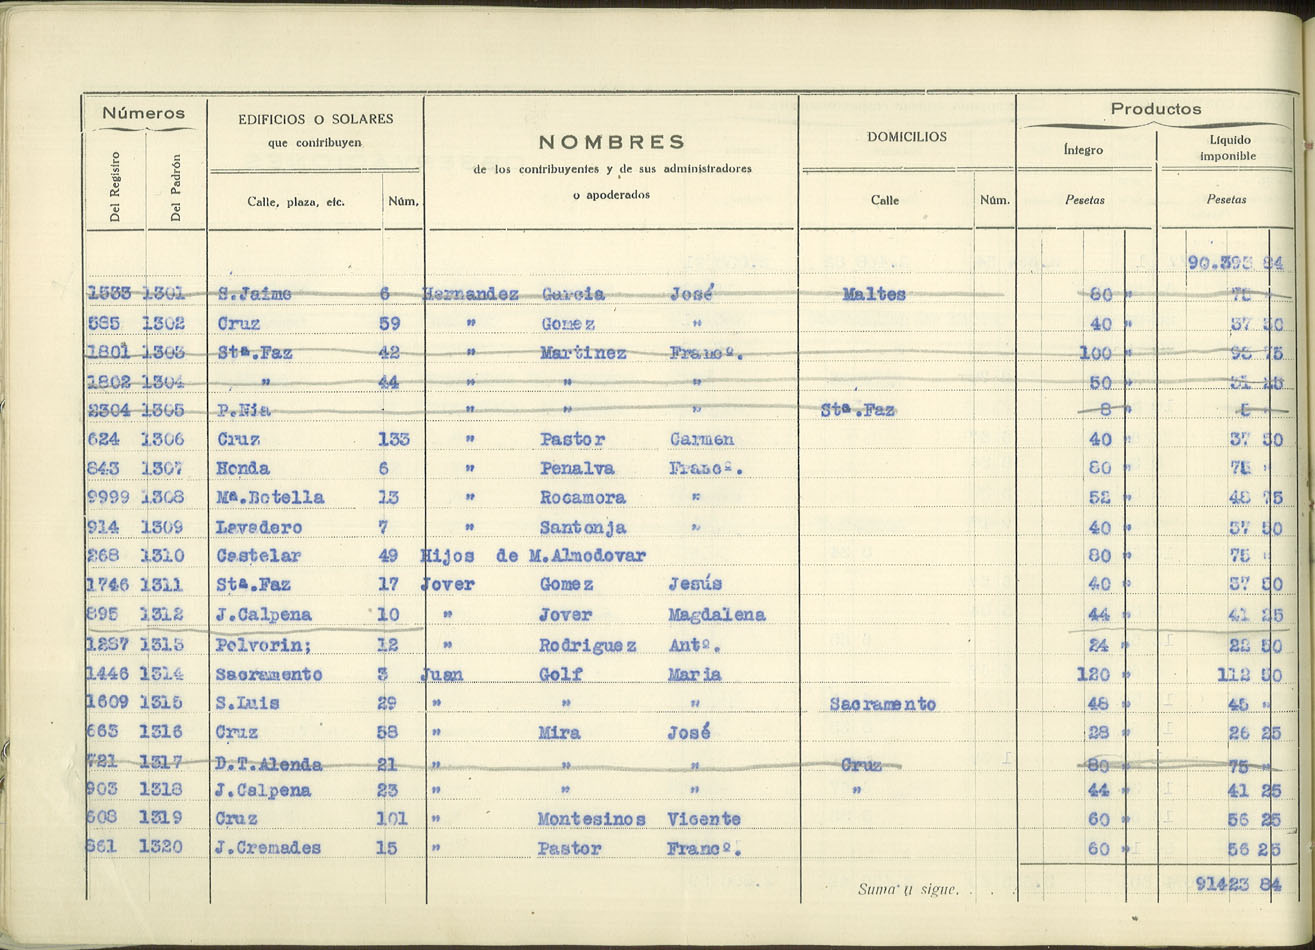 Números
EDIFICIOS O SOLARES
que contribuyen
NOMBRES
de los contribuyentes y de sus administradores
o apoderados
DOMICILIOS
Productos
Íntegro
Líquido
imponible
Del Registro Del Padrón Calle, plaza, etc. Núm. Calle Núm. Pesetas Pesetas
90.393 84
1533 1301 S.Jaime 6 Hernandez Garcia José Maltes 80 " 75 "
585 1302 Cruz 59 " Gomez " 40 " 37 50
1801 1303 Stª.Faz 42 " Martinez Francº. 100 " 93 75
1802 1304 " 44 " " " 50 " 31 25
2304 1305 P.Nia " " " Stª.Faz 8 "
624 1306 Cruz 133 " Pastor Carmen 40 " 37 50
843 1307 Honda 6 " Penalva Francº. 80 " 75 "
9999 1308 Mª.Botella 13 " Rocamora " 52 " 48 75
914 1309 Lavadero 7 " Santonja " 40 " 37 50
268 1310 Castelar 49 Hijos de M.Almodovar 80 " 75 "
1746 1311 Stª.Faz 17 Jover Gomez Jesús 40 " 37 50
895 1312 J.Calpena 10 " Jover Magdalena 44 " 41 25
1287 1313 Polvorin; 12 " Rodriguez Antº. 24 " 22 50
1446 1314 Sacramento 3 Juan Golf Maria 120 " 112 50
1609 1315 S.Luis 29 " " " Sacramento 48 " 45 "
663 1316 Cruz 58 " Mira José 28 " 26 25
721 1317 D.T.Alenda 21 " " " Cruz 80 " 75 "
903 1318 J.Calpena 23 " " " " 44 " 41 25
608 1319 Cruz 101 " Montesinos Vicente 60 " 56 25
861 1320 J.Cremades 15 " Pastor Francº. 60 " 56 25
Suma y sigue. . . . 91423 84